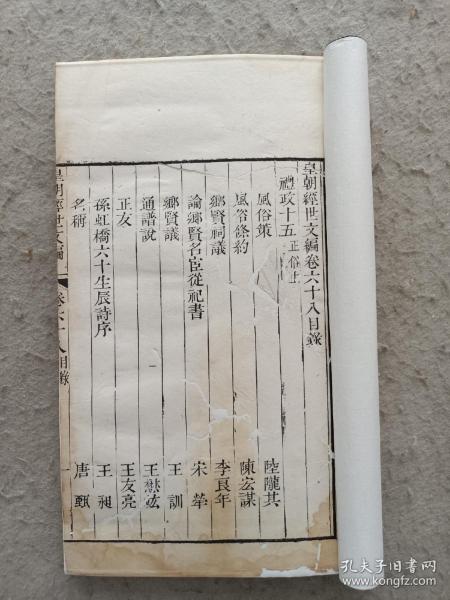 皇朝經世文編卷六十八目錄
禮政十五 正俗上
風俗策 陸隴其
風俗條約 陳宏謀
鄉賢祠議 李良年
論鄉賢名臣從祀書 宋犖
鄉賢議 王訓
通譜說 王懋竑
正友 王友亮
孫虹橋六十生辰詩序 王昶
名稱 唐甄
皇朝經世文編 卷六十八目錄 一
孔夫子旧书网
kongfz.com